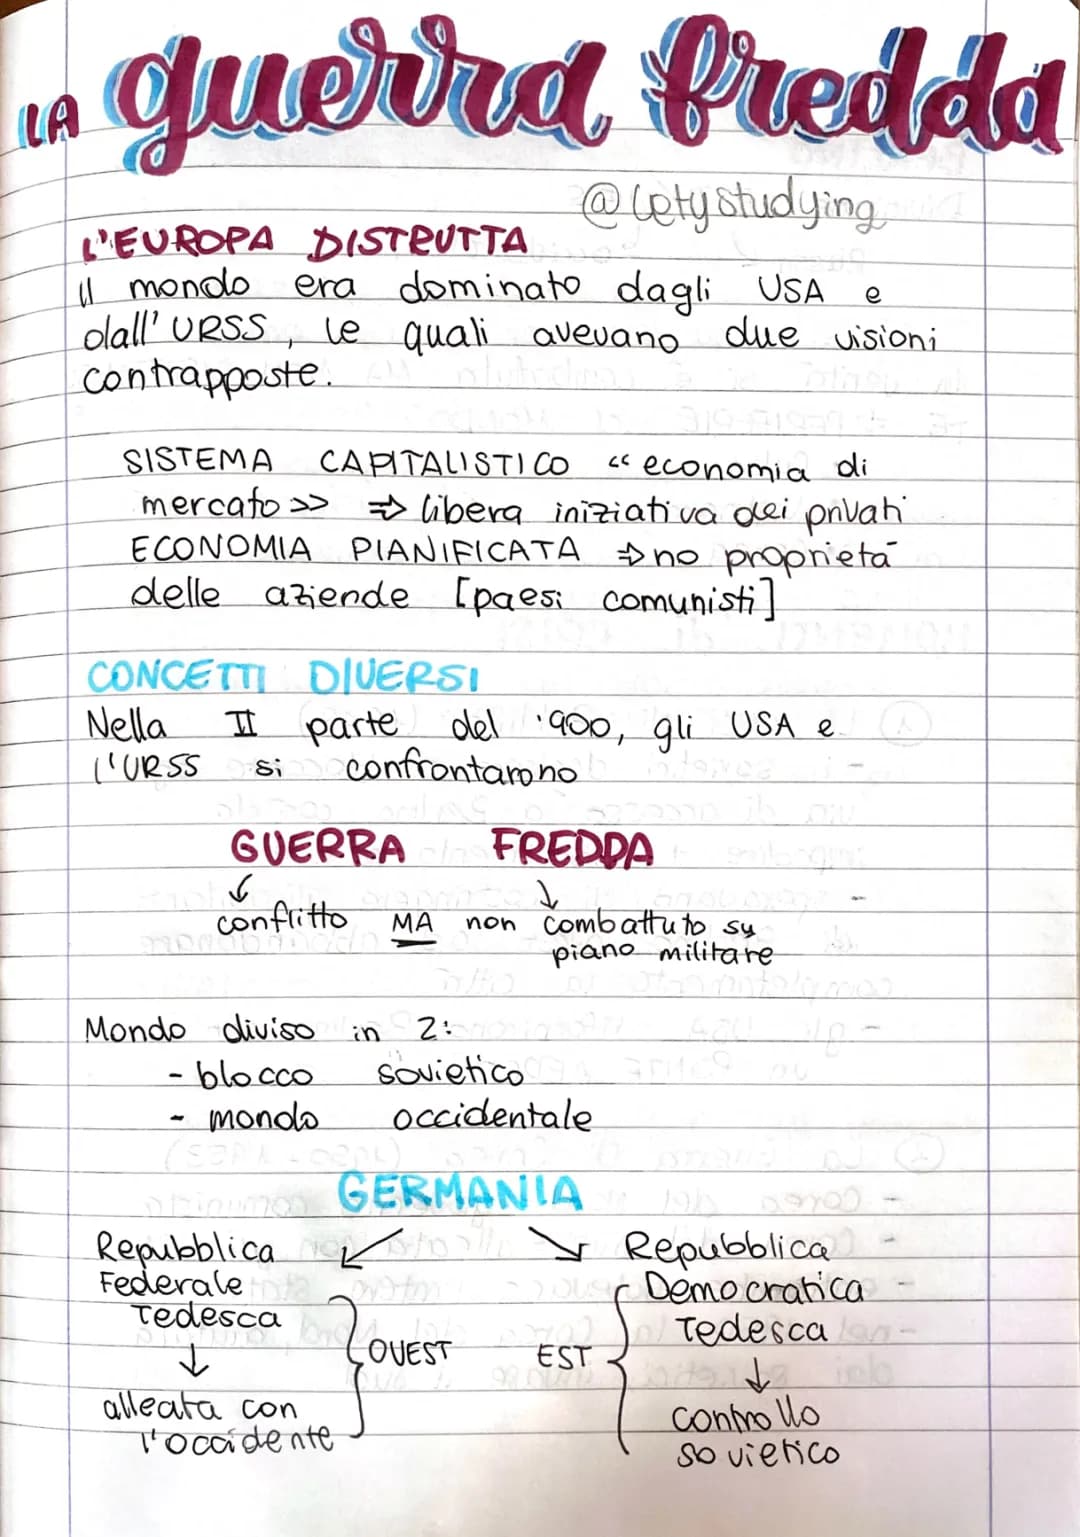 LA guerra fredda
@letystudying
L'EUROPA DISTRUTTA
Il mondo era dominato dagli USA e
dall'URSS, le quali avevano due visioni
contrapposte.
SISTEMA CAPITALISTICO “economia di
mercato>> ⇒ libera iniziativa dei privati
ECONOMIA PIANIFICATA ⇒ no proprietà
delle aziende [paesi comunisti]
CONCETTI DIVERSI
Nella II parte del '900, gli USA e
l'URSS si confrontarono
GUERRA FREDDA
↓ ↓
conflitto MA non combattuto su
piano militare
Mondo diviso in 2:
- blocco sovietico
- mondo occidentale
GERMANIA
Repubblica
Federale
Tedesca
↓
alleata con
l'occidente
OVEST
EST
Repubblica
Democratica
Tedesca
↓
controllo
sovietico